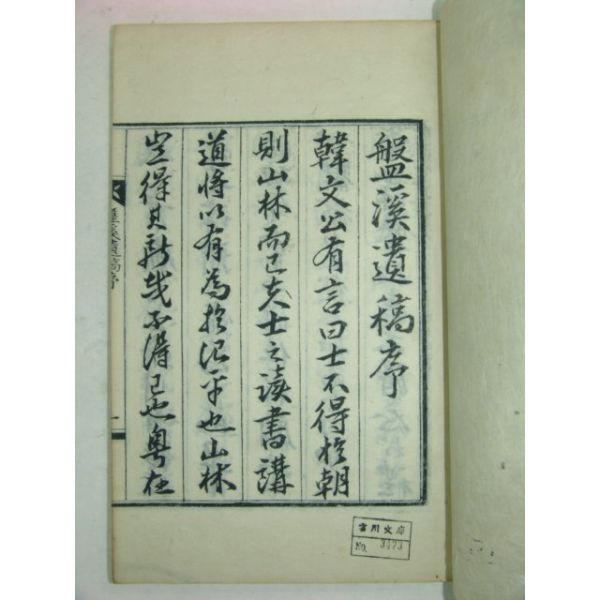 盤溪遺稿序
韓文公有言曰士不得於朝
則山林而已矣士之讀書講
道將以有為於治平也山林
豈得其所哉不得已也粤在
溪遺稿序
一
川文庫
No.